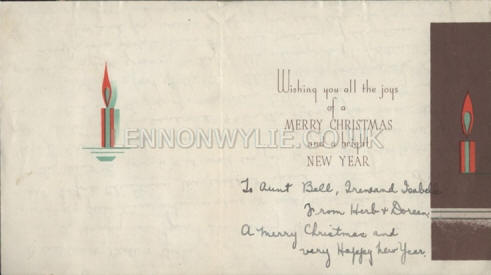 Wishing you all the joys
of a
MERRY CHRISTMAS
and a bright
NEW YEAR
LENNONWYLIE.CO.UK
To Aunt Bell, Irene and Isabel
From Herb & Doreen.
A Merry Christmas and
very Happy New Year.